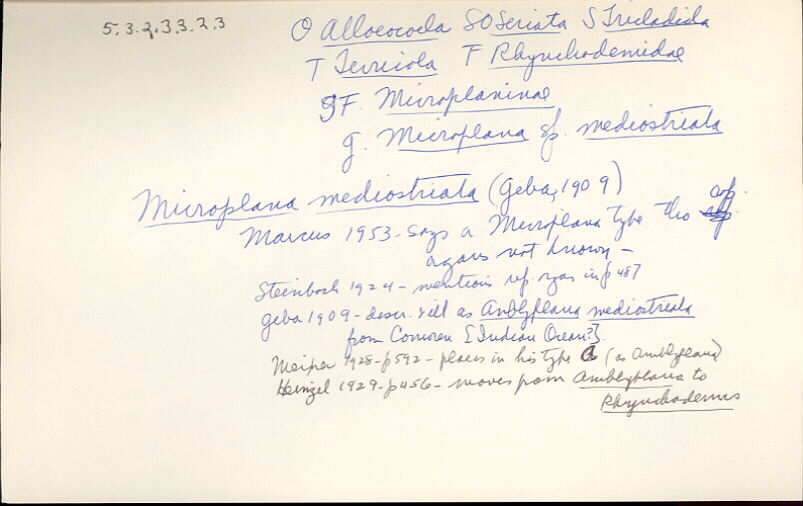 5.3.2.3.3.2.3
O Alloeocoela SO Seriata S Tricladida
T Terricola F Rhynchodemidae
SF. Microplaninae
g. Microplana sp. mediostriata
Microplana mediostriata (Geba, 1909)
Marcus 1953 - says a Microplana type tho cop.
organs not known -
Steinbock 1924 - mentions rep. organs in p 487
Geba 1909 - descr. & ill as Amblyplana mediostriata
from Comoren [Indian Ocean?].
Meixner 1928 - p 592 - places in his type (as Amblyplana)
Heinzel 1929 - p 456 - moves from Amblyplana to
Rhynchodemus